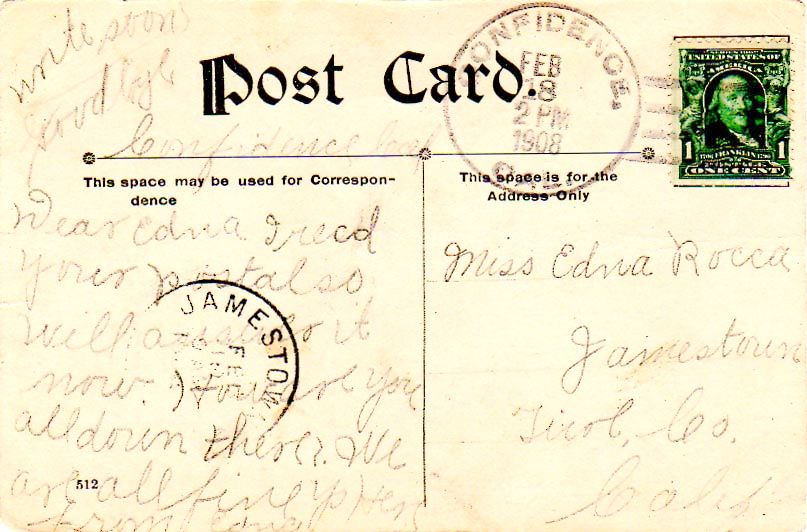 write soon
good bye
Post Card.
CONFIDENCE,
FEB
18
2 PM
1908
CAL.
UNITED STATES OF
AMERICA
1 1
FRANKLIN
ONE CENT
Confidence Cal
This space may be used for Correspon-
dence
This space is for the
Address Only
Dear Edna I recd
your postal so
will answer it
now. How are you
all down there. We
are all fine
from
JAMESTOW
FE
Miss Edna Rocca
Jamestown
Co.
Calif
512